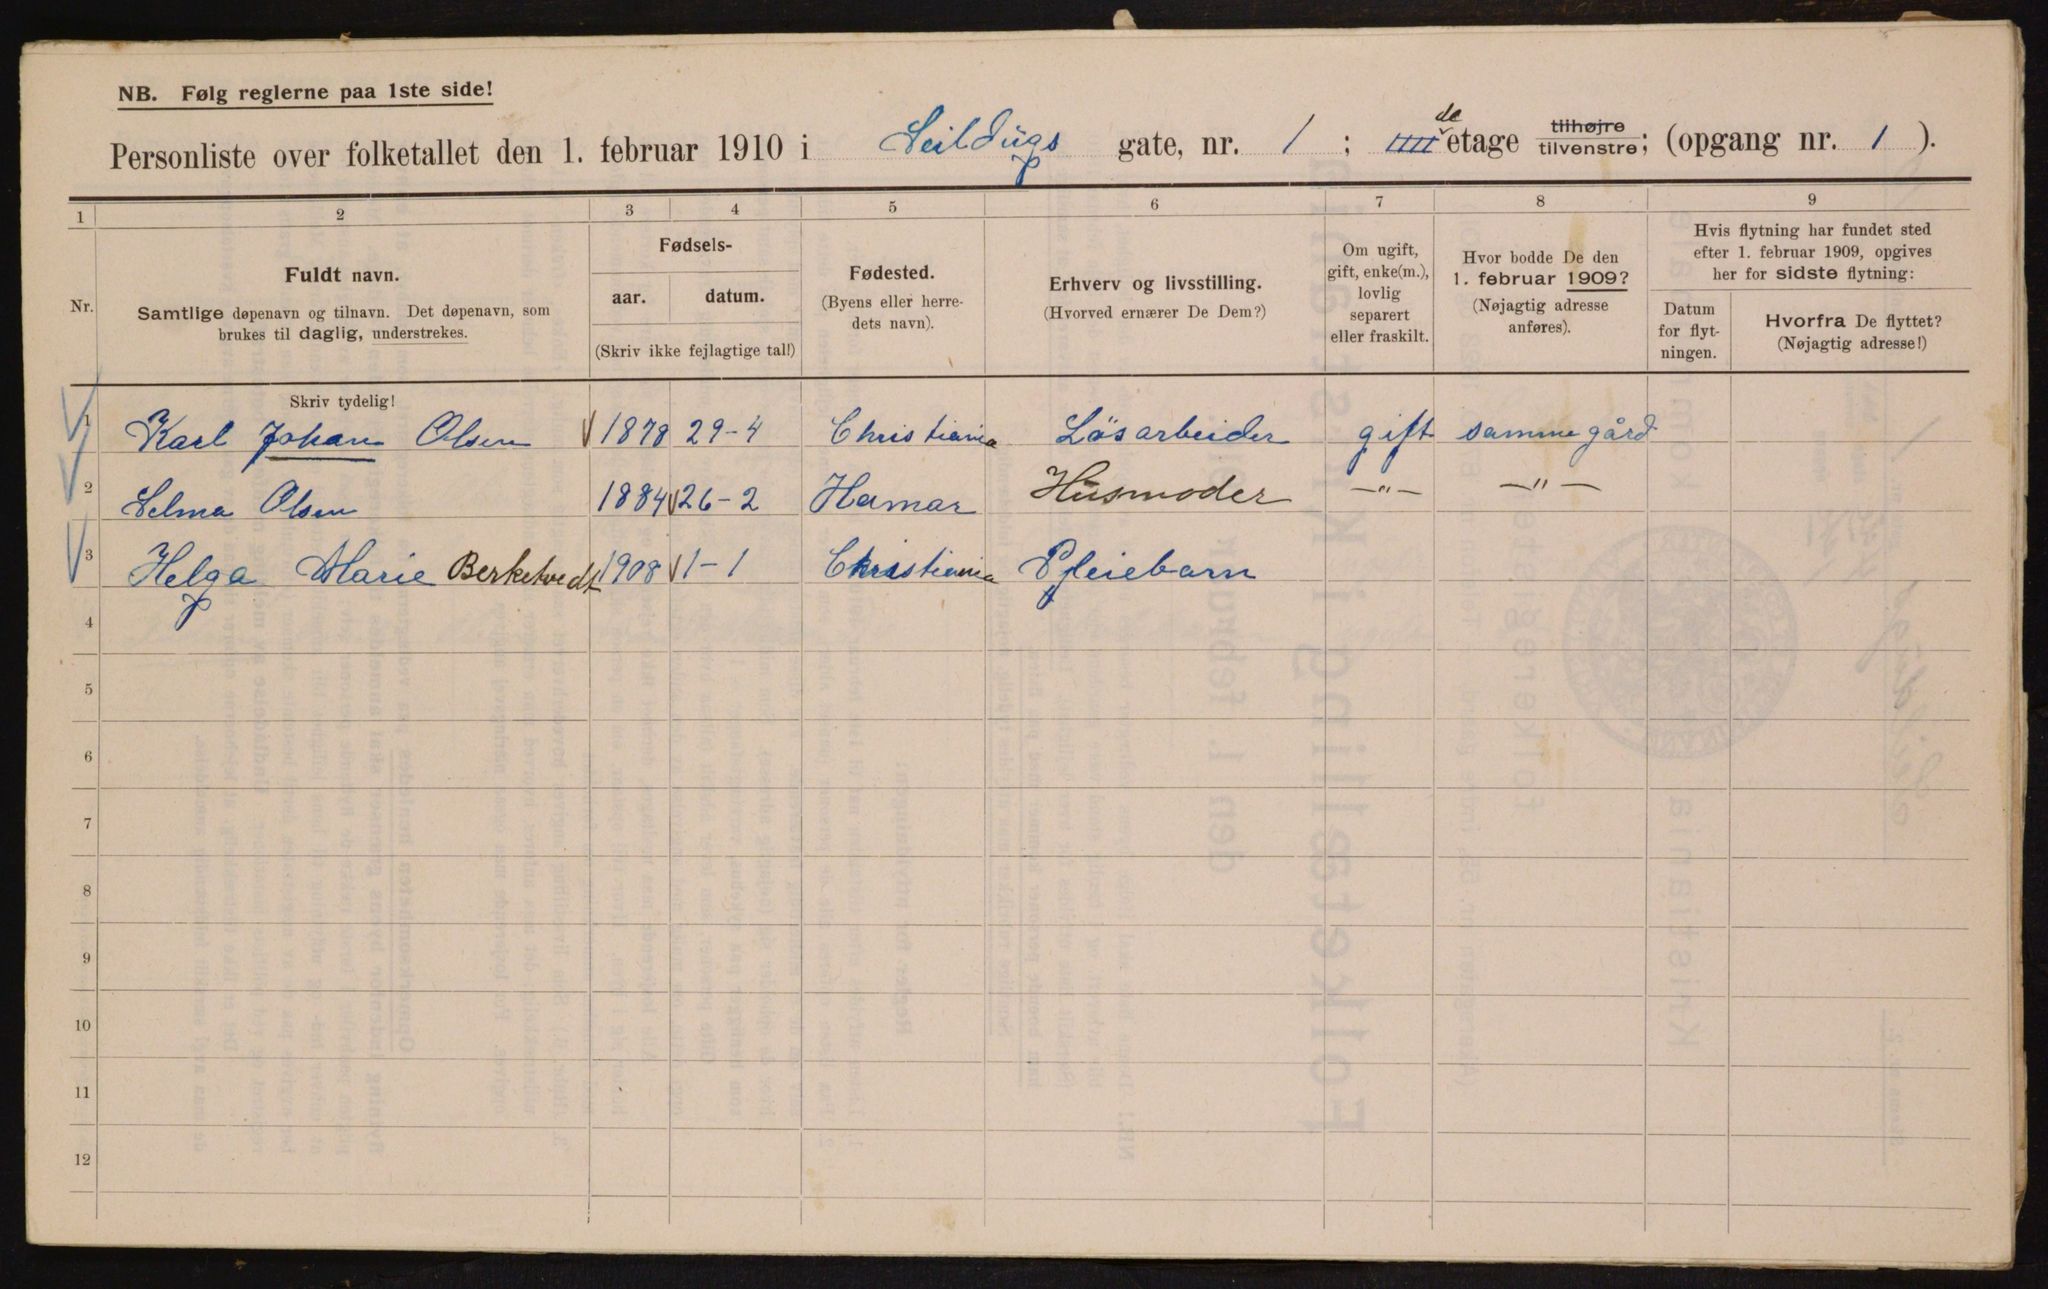 NB. Følg reglerne paa 1ste side!
Personliste over folketallet den 1. februar 1910 i Seildugs gate, nr. 1; IIII de etage tilhøjre tilvenstre; (opgang nr. 1).
1 2 3 4 5 6 7 8 9
Nr.
Fuldt navn.
Samtlige døpenavn og tilnavn. Det døpenavn, som
brukes til daglig, understrekes.
Skriv tydelig!
Fødsels-
aar. datum.
(Skriv ikke fejlagtige tal!)
Fødested.
(Byens eller herre-
dets navn).
Erhverv og livsstilling.
(Hvorved ernærer De Dem?)
Om ugift,
gift, enke(m.),
lovlig
separert
eller fraskilt.
Hvor bodde De den
1. februar 1909?
(Nøjagtig adresse
anføres).
Hvis flytning har fundet sted
efter 1. februar 1909, opgives
her for sidste flytning:
Datum
for flyt-
ningen.
Hvorfra De flyttet?
(Nøjagtig adresse!)
1 Karl Johan Olsen 1878 29-4 Christiania Løsarbeider gift samme gård
2 Selma Olsen 1884 26-2 Hamar Husmoder —"— —"—
3 Helga Marie Berketvedt 1908 1-1 Christiania Pleiebarn
4
5
6
7
8
9
10
11
12